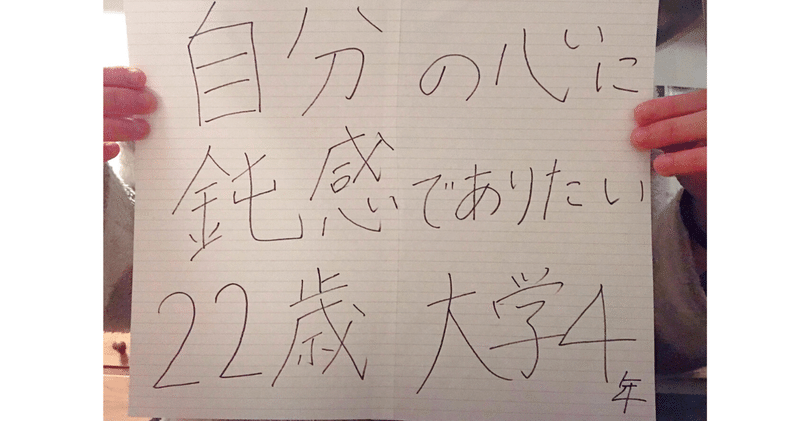 自分の心に
鈍感でありたい
22歳 大学4年